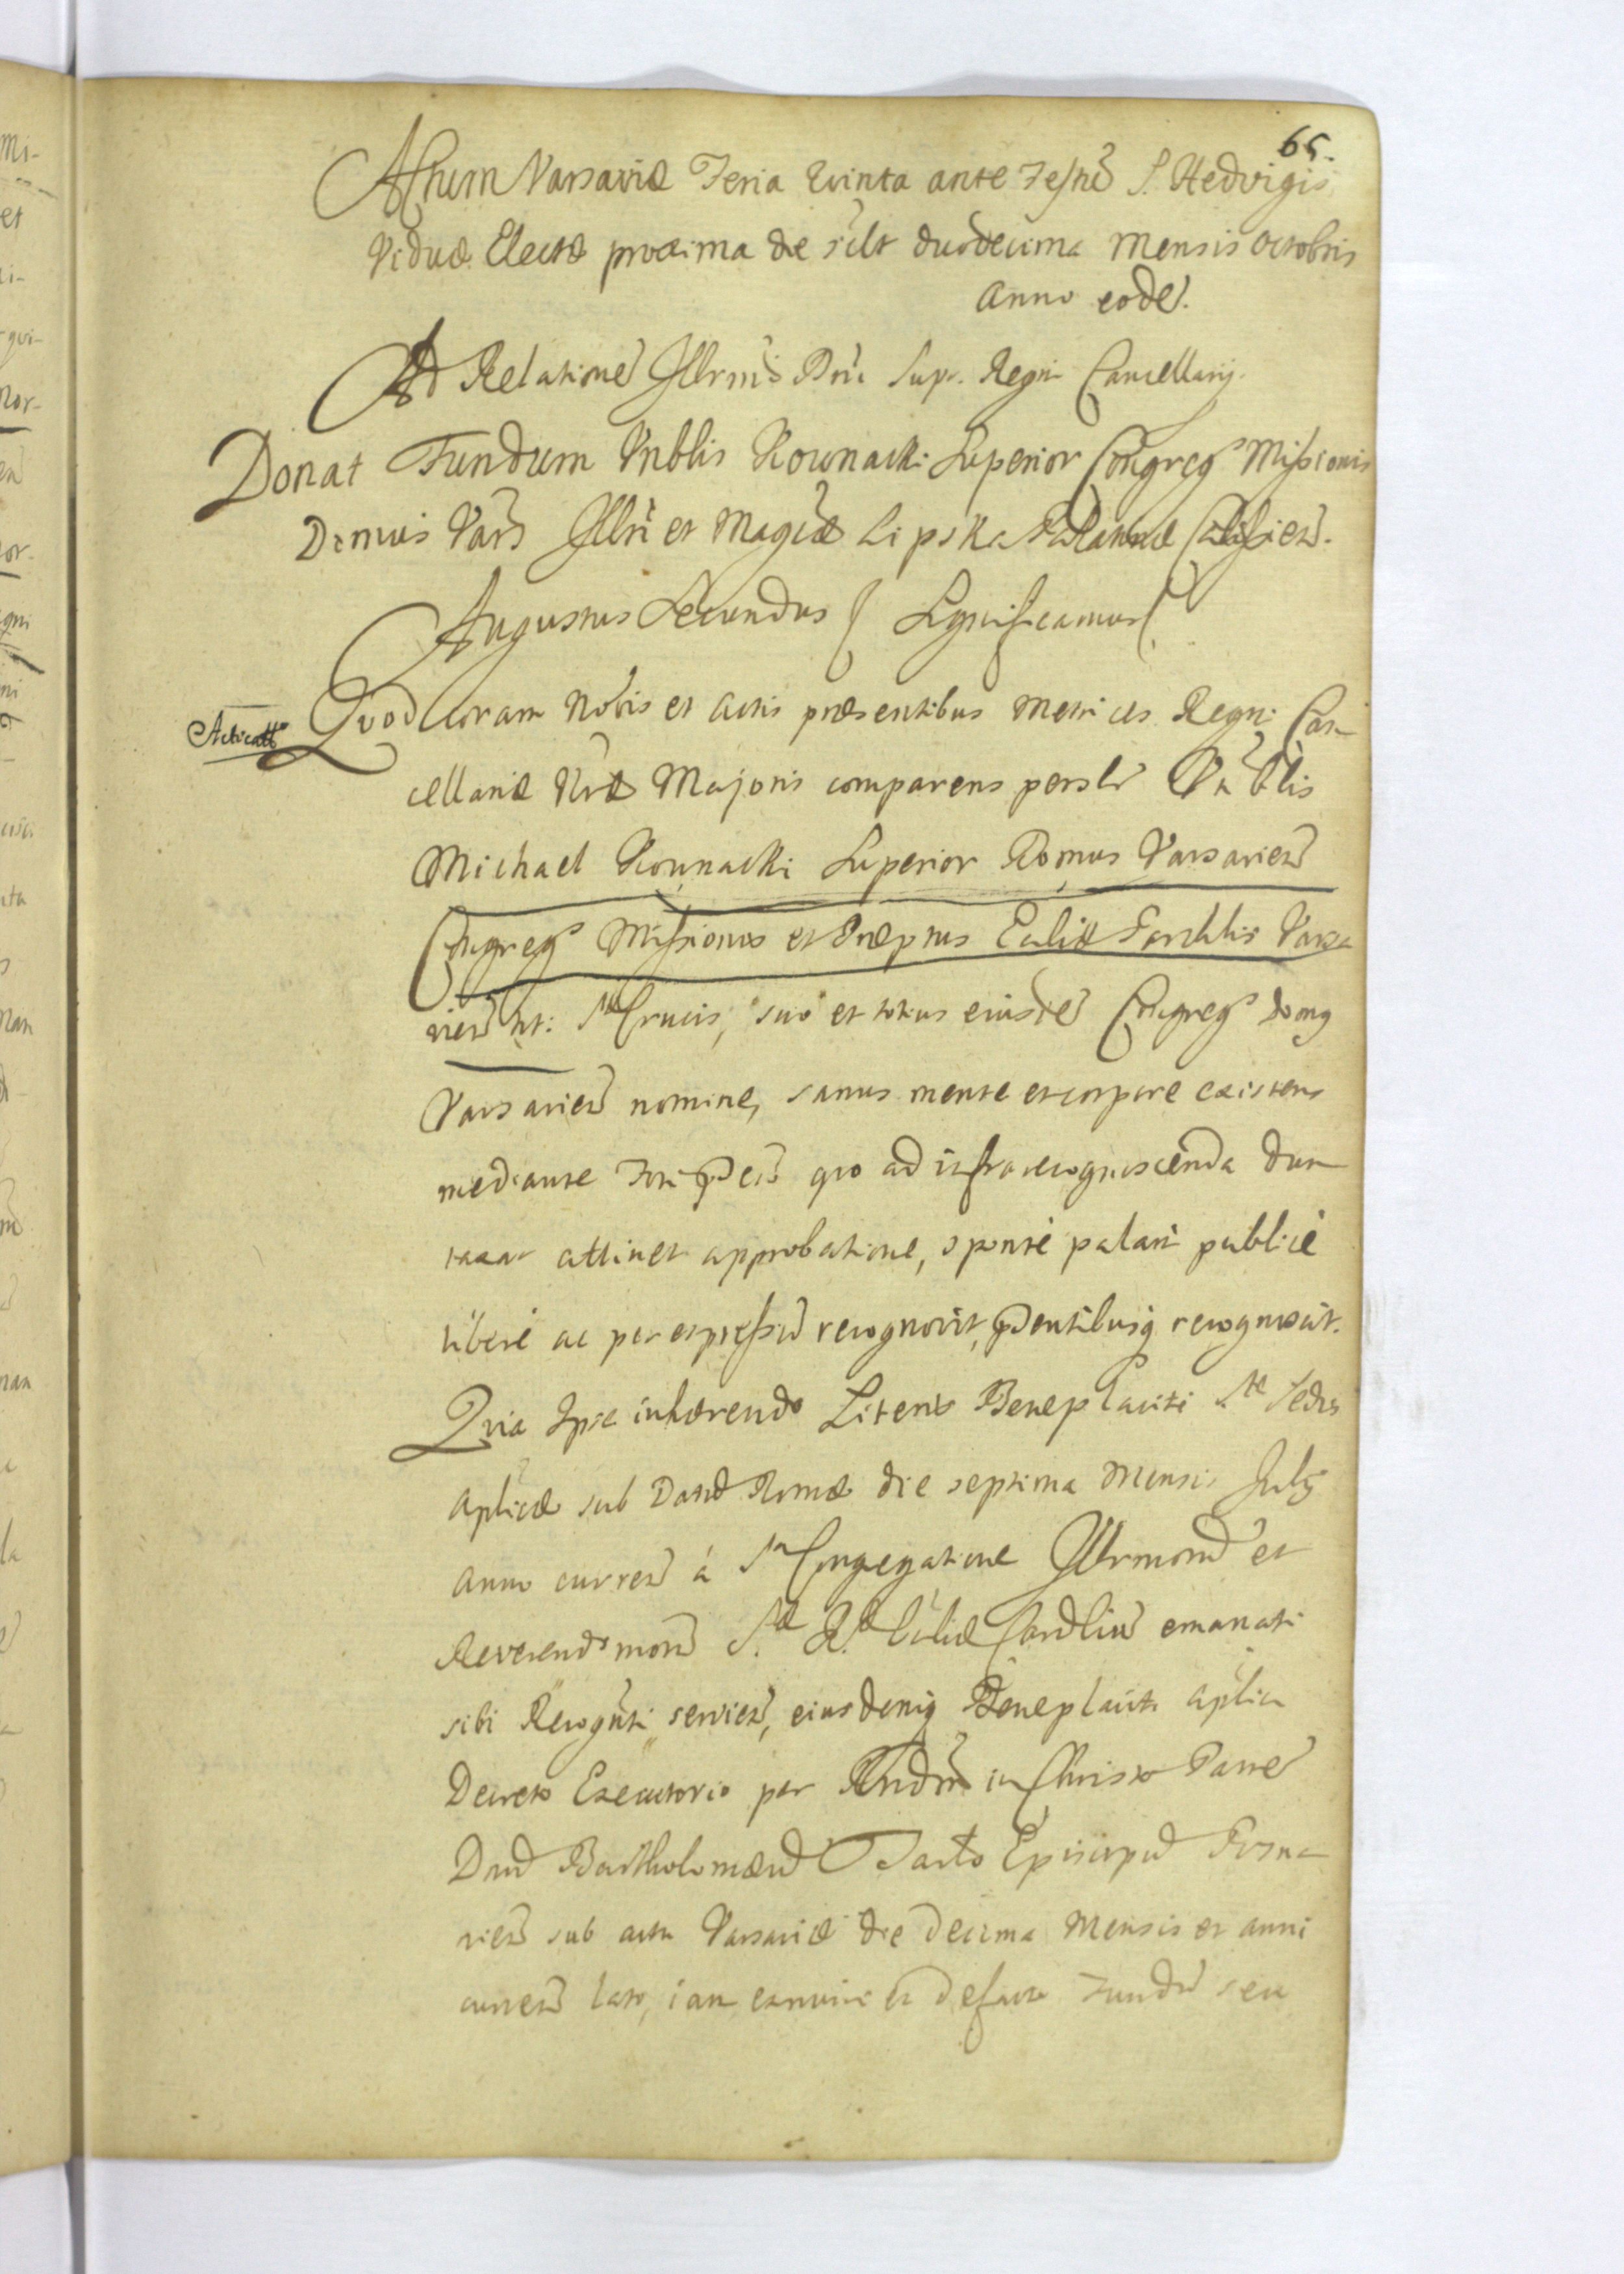 65.
Actum Varsaviæ Feria Quinta ante Festũ S. Hedvigis
Viduæ Electæ proxima die sclt duodecima Mensis Octobris
Anno eodẽ.
Ad Relationẽ Illrmi Dni Supr. Regni Cancellarij.
Donat Fundum Vnblis Kownacki Superior Congregs Missionis
Domus Vars Illri et Magcæ Lipska Palatinæ Calissieñ.
Augustus Secundus Significamus
Quod Coram Nobis et Actis præsentibus Metrices Regni Can
cellariæ Nræ Majoris comparens perslr Vnblis
Michael Kownacki Superior Domus Varsavieñ
Congregs Missionis et Præptus Ecliæ Parchlis Varsa
vieñ tit: Stæ Crucis, suo et totius eiusdẽ Congregs Domg
Varsavieñ nomine, sanus mente et corpore existens
mediante Fori pñtis quo ad infra recognoscenda dun
taxat attinet approbatione, sponte palam publice
libere ac per expressũ recognovit, pntibusq recognoscit.
Quia Ipse inhærendo Literis Beneplaciti Stæ Sedis
Aplicæ sub Datũ Romæ die septima Mensis Julij
Anno curreñ à Sa Congregatione Illrmorũ et
Reverendsmorũ S. R. Ecliæ Cardliũ emanati
sibi Recogñti servieñ, eiusdemq Beneplaciti Aplici
Decreto Executorio per Rndũ in Christo Patrẽ
Dnũ Bartholomæũ Tarło Episcopũ Posna
nieñ sub actu Varsaviæ die decima Mensis et anni
curreñ lato, iam ex nunc et de facto Fundũ seu